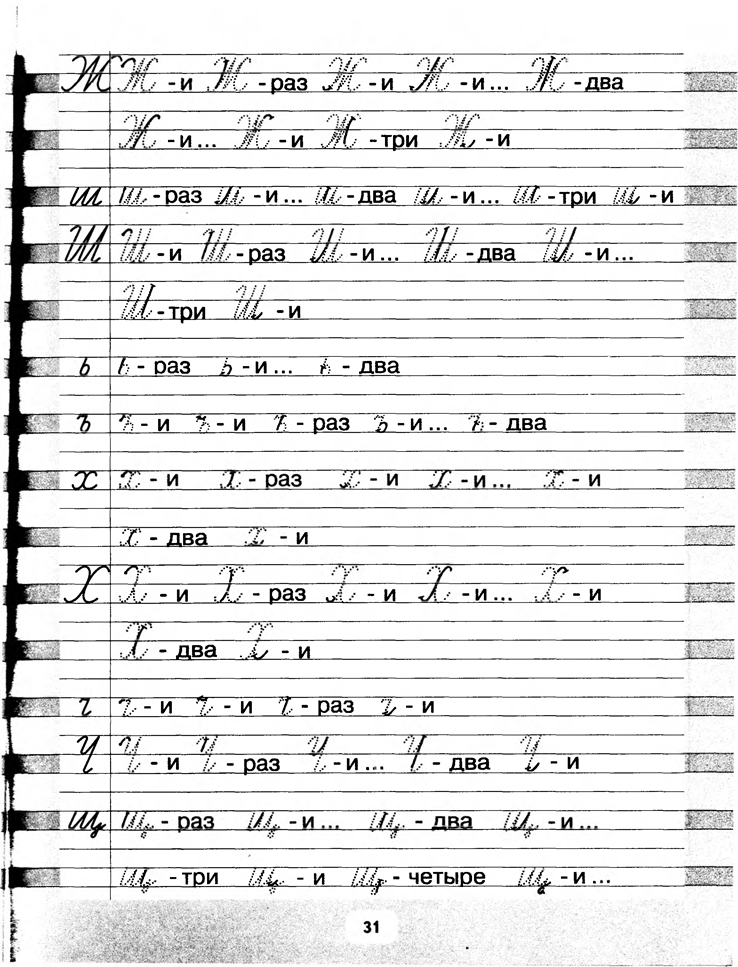 Ж Ж - и Ж - раз Ж - и Ж - и... Ж - два
Ж - и... Ж - и Ж - три Ж - и
ш ш - раз ш - и... ш - два ш - и... ш - три ш - и
Ш Ш - и Ш - раз Ш - и... Ш - два Ш - и...
Ш - три Ш - и
ь ь - раз ь - и... ь - два
ъ ъ - и ъ - и ъ - раз ъ - и... ъ - два
х х - и х - раз х - и х - и... х - и
х - два х - и
Х Х - и Х - раз Х - и Х - и... Х - и
Х - два Х - и
ч ч - и ч - и ч - раз ч - и
Ч Ч - и Ч - раз Ч - и... Ч - два Ч - и
щ щ - раз щ - и... щ - два щ - и...
щ - три щ - и щ - четыре щ - и...
31